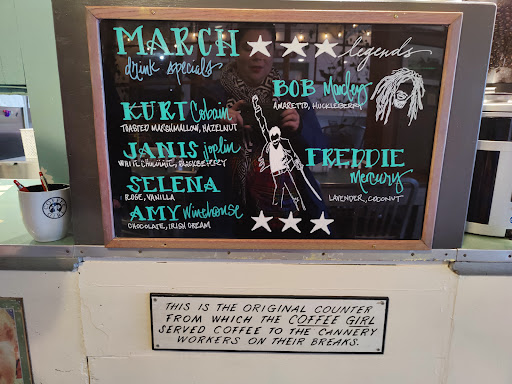 MARCH
drink specials
legends
KURT Cobain
TOASTED MARSHMALLOW, HAZELNUT
JANIS joplin
WHITE CHOCOLATE, BLACKBERRY
SELENA
ROSE, VANILLA
AMY Winehouse
CHOCOLATE, IRISH CREAM
BOB Marley
AMARETTO, HUCKLEBERRY
FREDDIE
Mercury
LAVENDER, COCONUT
THIS IS THE ORIGINAL COUNTER
FROM WHICH THE COFFEE GIRL
SERVED COFFEE TO THE CANNERY
WORKERS ON THEIR BREAKS.